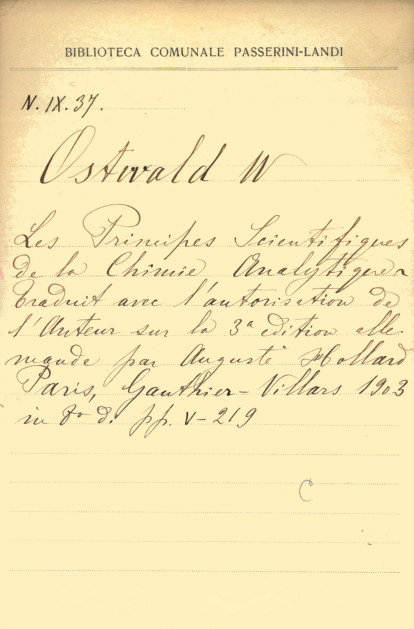 BIBLIOTECA COMUNALE PASSERINI-LANDI
N. IX. 37.
Ostwald W
Les Principes Scientifiques
de la Chimie Analytique
traduit avec l'autorisation de
l'Auteur sur la 3ª edition alle-
mande par Auguste Hollard
Paris, Gauthier-Villars 1903
in 8º d. pp. V-219
C